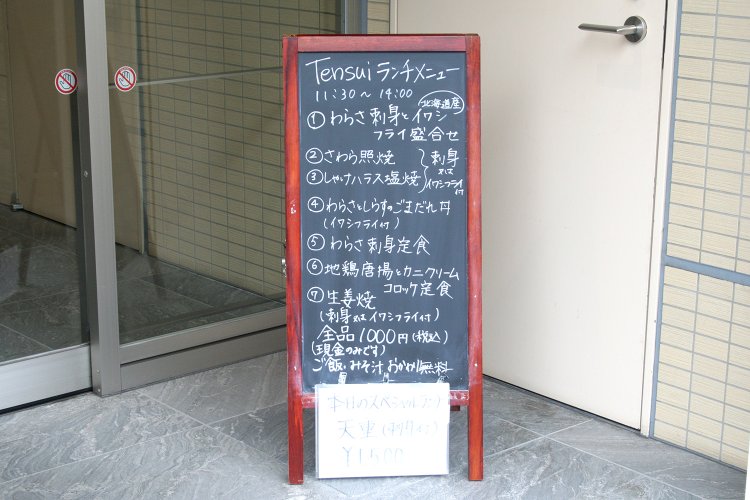 Tensui ランチメニュー
11:30〜14:00
北海道産
① わらさ刺身とイワシ
フライ盛合せ
② さわら照焼
③ しゃけハラス塩焼
刺身
又は
イワシフライ
付
④ わらさとしらすのごまだれ丼
(イワシフライ付)
⑤ わらさ刺身定食
⑥ 地鶏唐揚とカニクリーム
コロッケ定食
⑦ 生姜焼
(刺身又はイワシフライ付)
全品1000円(税込)
(現金のみです)
ご飯、みそ汁、おかわり無料
本日のスペシャルランチ
天重
¥1500